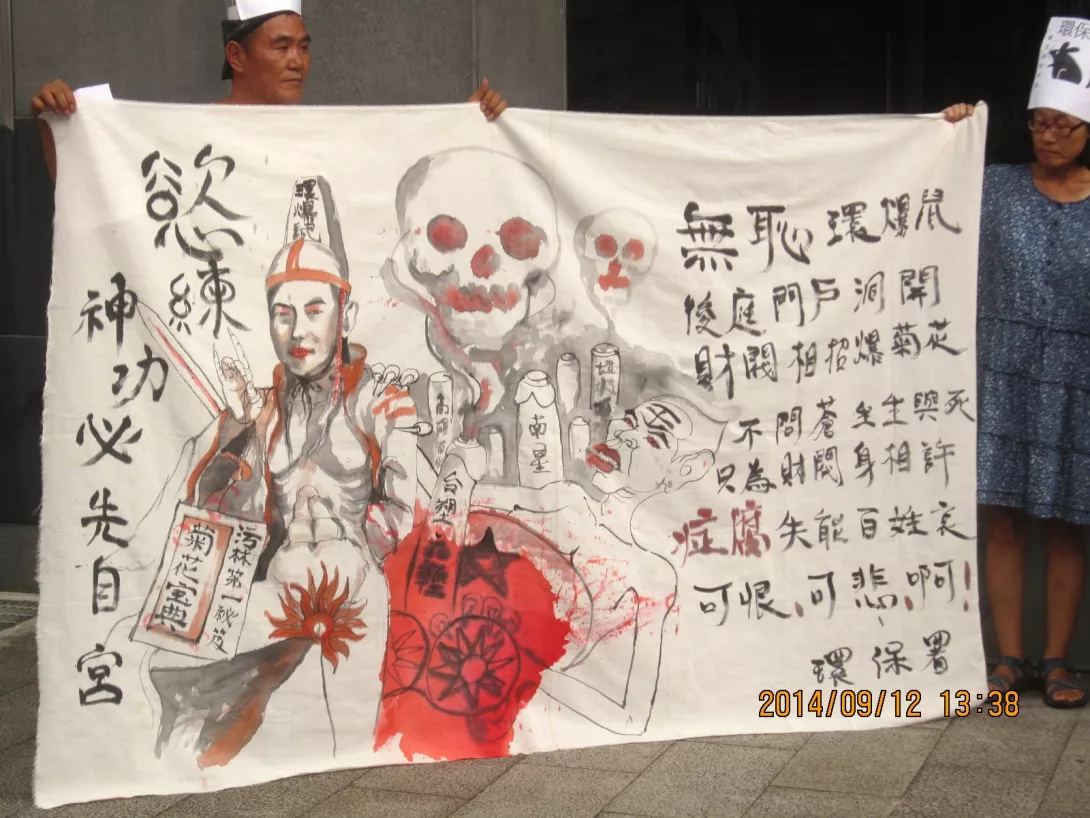 慾練
神功必先自宮
環爆鼠
污林第一祕笈
菊花宝典
南星
台塑
無恥環爆鼠
後庭門戶洞開
財閥相招爆菊花
不問蒼生生與死
只為財閥身相許
症腐失能百姓哀
可恨!可悲!啊!
環保署
環保
2014/09/12 13:38